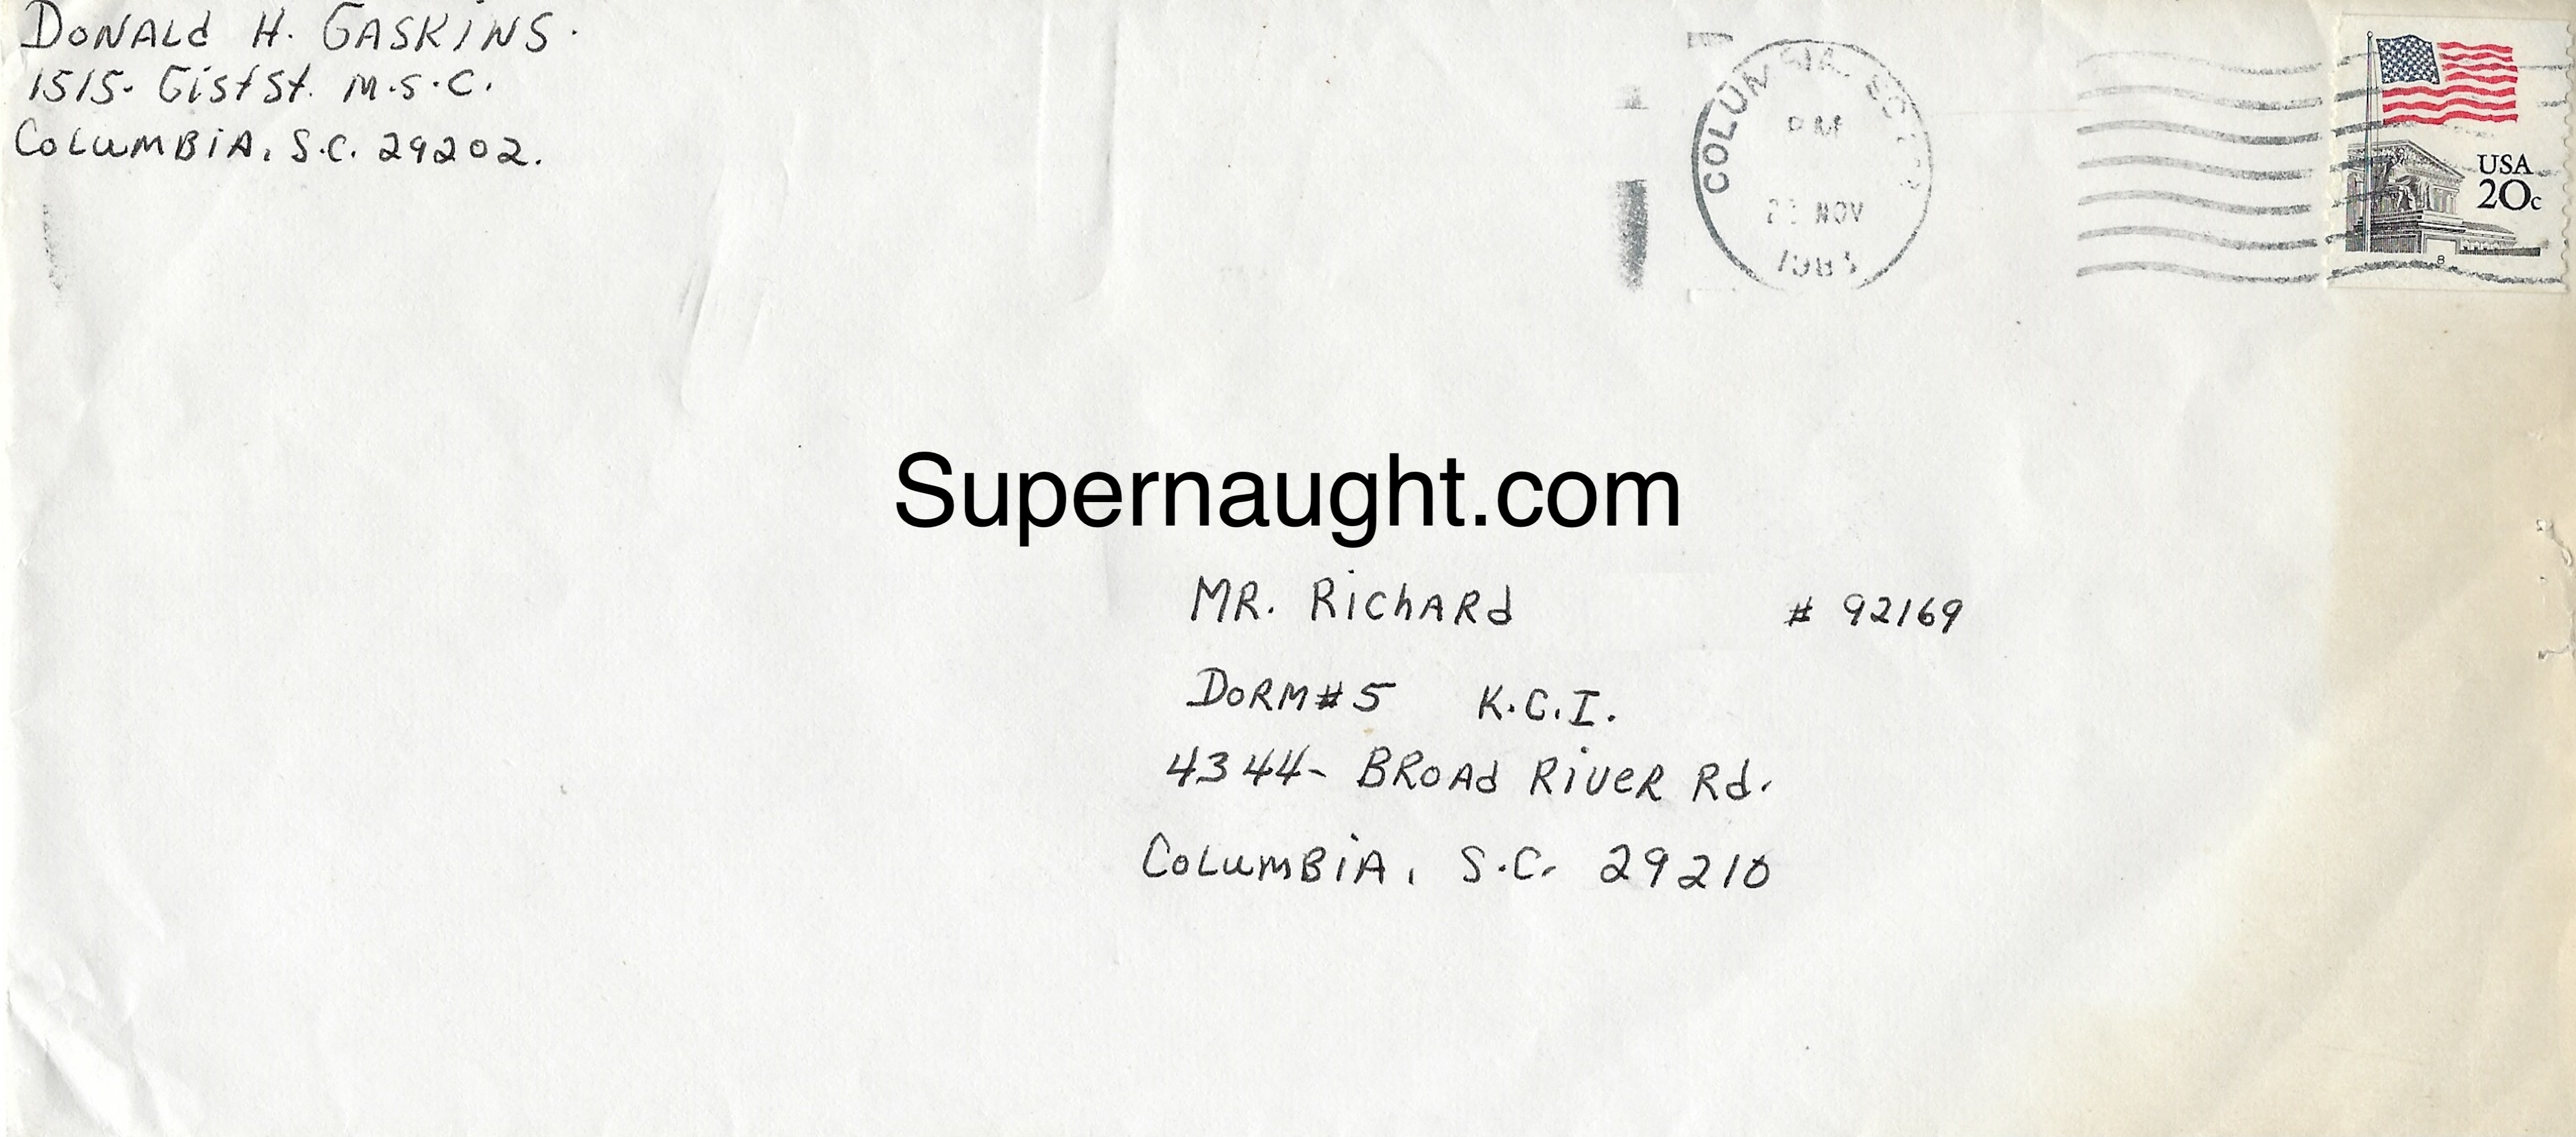 DONALd H. GASKiNS.
1515- Gist St. M.S.C.
COLUMBiA, S.C. 29202.
PM
NOV
USA
20c
8
Supernaught.com
MR. RichARd # 92169
DORM#5 K.C.I.
4344- BROAd RiVeR Rd.
COLUMBiA, S.C. 29210